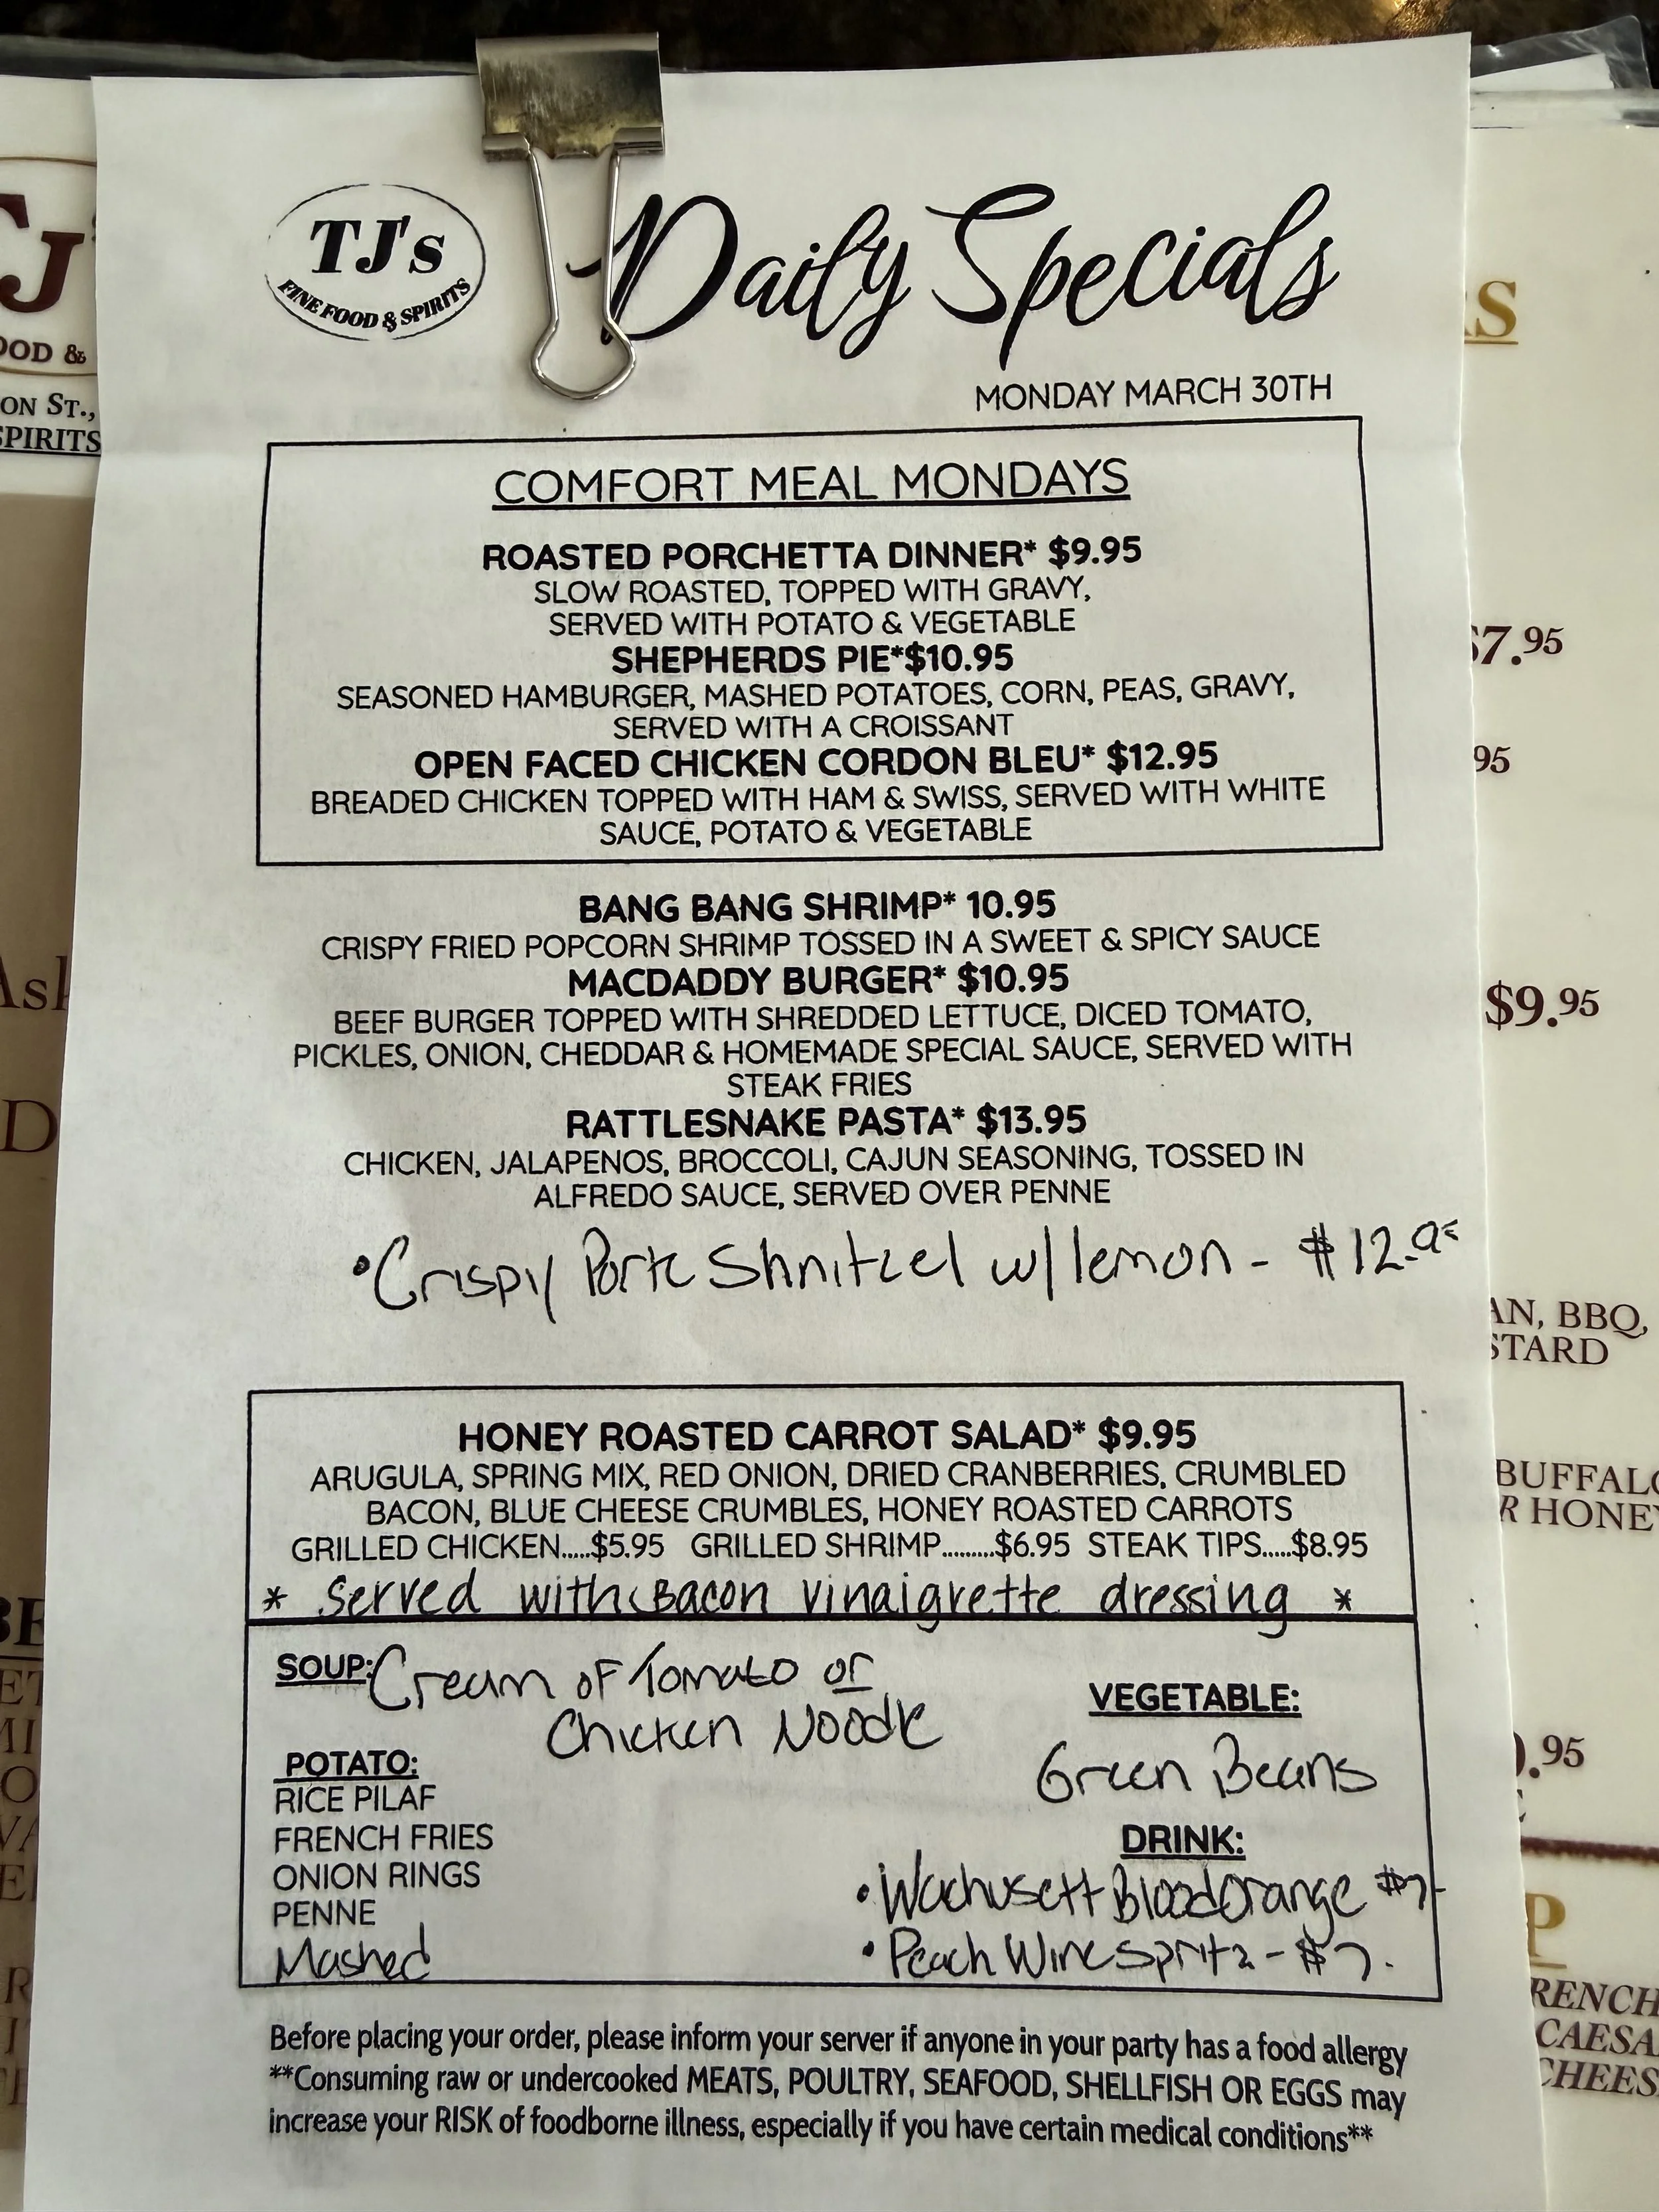 TJ's
FINE FOOD & SPIRITS
Daily Specials
MONDAY MARCH 30TH
COMFORT MEAL MONDAYS
ROASTED PORCHETTA DINNER* $9.95
SLOW ROASTED, TOPPED WITH GRAVY,
SERVED WITH POTATO & VEGETABLE
SHEPHERDS PIE*$10.95
SEASONED HAMBURGER, MASHED POTATOES, CORN, PEAS, GRAVY,
SERVED WITH A CROISSANT
OPEN FACED CHICKEN CORDON BLEU* $12.95
BREADED CHICKEN TOPPED WITH HAM & SWISS, SERVED WITH WHITE
SAUCE, POTATO & VEGETABLE
BANG BANG SHRIMP* 10.95
CRISPY FRIED POPCORN SHRIMP TOSSED IN A SWEET & SPICY SAUCE
MACDADDY BURGER* $10.95
BEEF BURGER TOPPED WITH SHREDDED LETTUCE, DICED TOMATO,
PICKLES, ONION, CHEDDAR & HOMEMADE SPECIAL SAUCE, SERVED WITH
STEAK FRIES
RATTLESNAKE PASTA* $13.95
CHICKEN, JALAPENOS, BROCCOLI, CAJUN SEASONING, TOSSED IN
ALFREDO SAUCE, SERVED OVER PENNE
•Crispy Pork Shnitzel w/ lemon - $12.95
HONEY ROASTED CARROT SALAD* $9.95
ARUGULA, SPRING MIX, RED ONION, DRIED CRANBERRIES, CRUMBLED
BACON, BLUE CHEESE CRUMBLES, HONEY ROASTED CARROTS
GRILLED CHICKEN.....$5.95 GRILLED SHRIMP.........$6.95 STEAK TIPS.....$8.95
* Served with Bacon vinaigrette dressing *
SOUP: Cream of Tomato or
Chicken Noodle
POTATO:
RICE PILAF
FRENCH FRIES
ONION RINGS
PENNE
Mashed
VEGETABLE:
Green Beans
DRINK:
• Wachusett Blood Orange $7-
• Peach Wine Spritz - $7.
Before placing your order, please inform your server if anyone in your party has a food allergy
**Consuming raw or undercooked MEATS, POULTRY, SEAFOOD, SHELLFISH OR EGGS may
increase your RISK of foodborne illness, especially if you have certain medical conditions**
OOD &
ON ST.,
SPIRITS
$7.95
95
$9.95
AN, BBQ,
STARD
BUFFALO
R HONEY
.95
RENCH
CAESA
CHEES